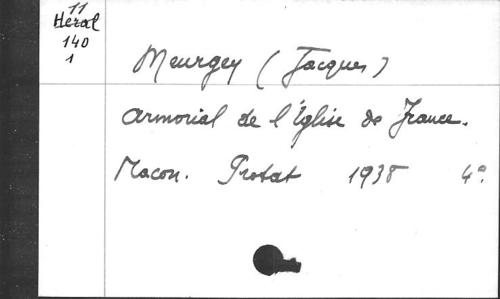 11
Héral
140
1
Meurgey (Jacques)
Armorial de l'Église de France.
Macon. Protat 1938 4°.